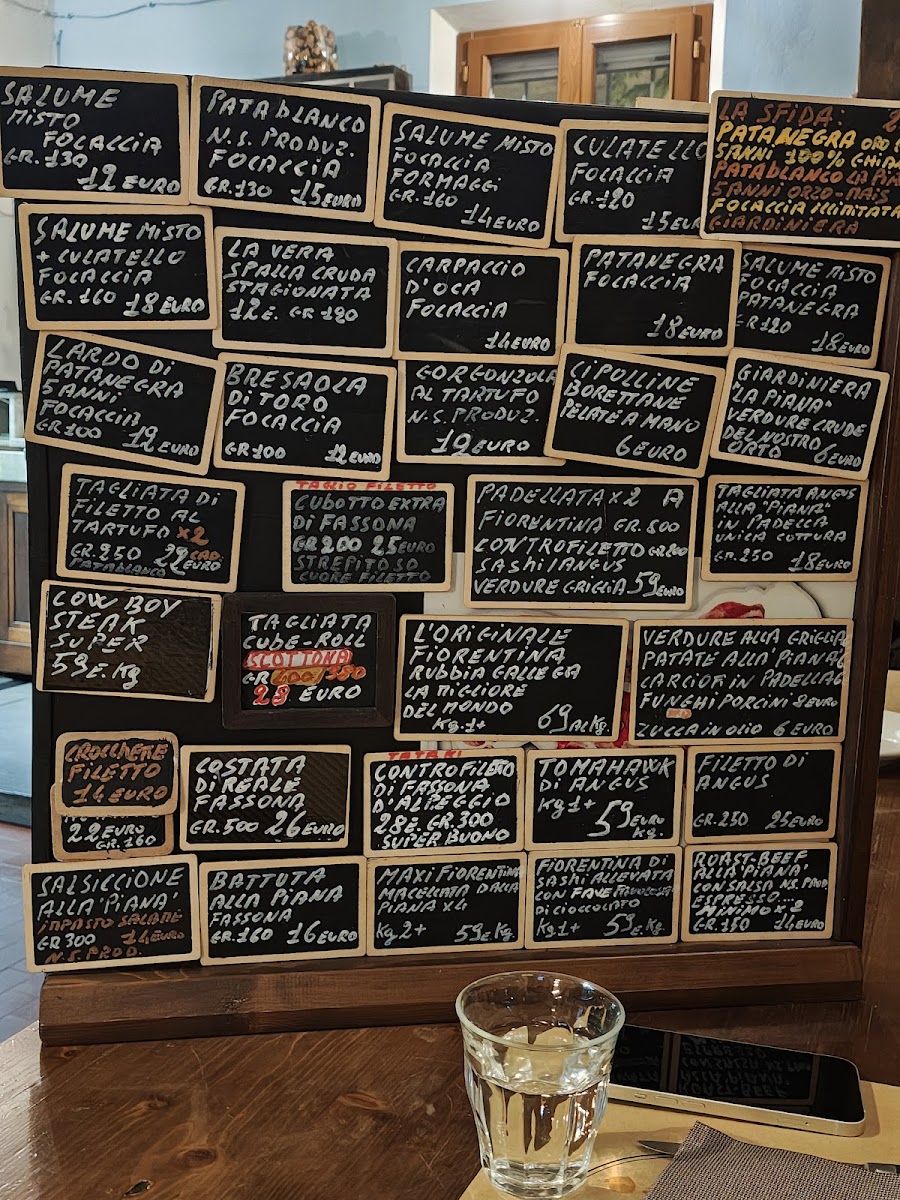 SALUME
MISTO
FOCACCIA
GR. 130
12 EURO
PATABLANCO
N.S. PRODUZ.
FOCACCIA
GR. 130 15 EURO
SALUME MISTO
FOCACCIA
FORMAGGI
GR. 160
14 EURO
CULATELLO
FOCACCIA
GR. 120
15 EURO
LA SFIDA:
PATANEGRA ORO
5ANNI 100%
PATABLANCO LA
5ANNI ORZO-MAIS
FOCACCIA ILLIMITATA
GIARDINIERA
SALUME MISTO
+ CULATELLO
FOCACCIA
GR. 160 18 EURO
LA VERA
SPALLA CRUDA
STAGIONATA
12 E. GR 120
CARPACCIO
D'OCA
FOCACCIA
14 EURO
PATANEGRA
FOCACCIA
18 EURO
SALUME MISTO
FOCACCIA
PATANEGRA
GR 120
18 EURO
LARDO DI
PATANEGRA
5ANNI
FOCACCIA
GR 100 12 EURO
BRESAOLA
DI TORO
FOCACCIA
GR 100 12 EURO
GORGONZOLA
AL TARTUFO
N.S. PRODUZ.
12 EURO
CIPOLLINE
BORETTANE
PELATE A MANO
6 EURO
GIARDINIERA
"LA PIANA"
VERDURE CRUDE
DEL NOSTRO
ORTO 6 EURO
TAGLIATA DI
FILETTO AL
TARTUFO x2
GR. 250 22 CAD.
EURO
PATABLANCO
TAGLIO FILETTO
CUBOTTO EXTRA
DI FASSONA
GR 200 25 EURO
STREPITOSO
CUORE FILETTO
PADELLATA x 2 A
FIORENTINA GR. 800
CONTROFILETTO GR 200
SASHI/ANGUS
VERDURE GRIGLIA 59 EURO
TAGLIATA ANGUS
ALLA "PIANA"
IN PADELLA
UNICA COTTURA
GR. 250 18 EURO
COW BOY
STEAK
SUPER
59 E. Kg
TAGLIATA
CUBE-ROLL
SCOTTONA
GR
28 EURO
L'ORIGINALE
FIORENTINA
RUBBIA GALLEGA
LA MIGLIORE
DEL MONDO
Kg. 1+ 69 AL Kg
VERDURE ALLA GRIGLIA
PATATE ALLA "PIANA" 6
CARCIOF IN PADELLA 6
FUNGHI PORCINI 8 EURO
ZUCCA IN OLIO 6 EURO
CROCCHETTE
FILETTO
14 EURO
22 EURO
GR. 160
COSTATA
DI REALE
FASSONA
GR. 500 26 EURO
TATAKI
CONTROFILETTO
DI FASSONA
D'ALPEGGIO
28 E. GR. 300
SUPER BUONO
TOMAHAWK
DI ANGUS
Kg 1+ 59 EURO
Kg.
FILETTO DI
ANGUS
GR. 250 25 EURO
SALSICCIONE
ALLA "PIANA"
IMPASTO SALAME
GR 300 14 EURO
N.S. PROD.
BATTUTA
ALLA PIANA
FASSONA
GR. 160 16 EURO
MAXI FIORENTINA
MACELLATA DALLA
PIANA x 4
Kg 2+ 59 E. Kg.
FIORENTINA DI
SASHI ALLEVATA
CON FAVE FAVOLOSA
DI CIOCCOLATO
Kg. 1+ 59 E. Kg.
ROAST-BEEF
ALLA "PIANA"
CON SALSA N.S. PROD
ESPRESSO...
MINIMO x 2
GR. 150 14 EURO